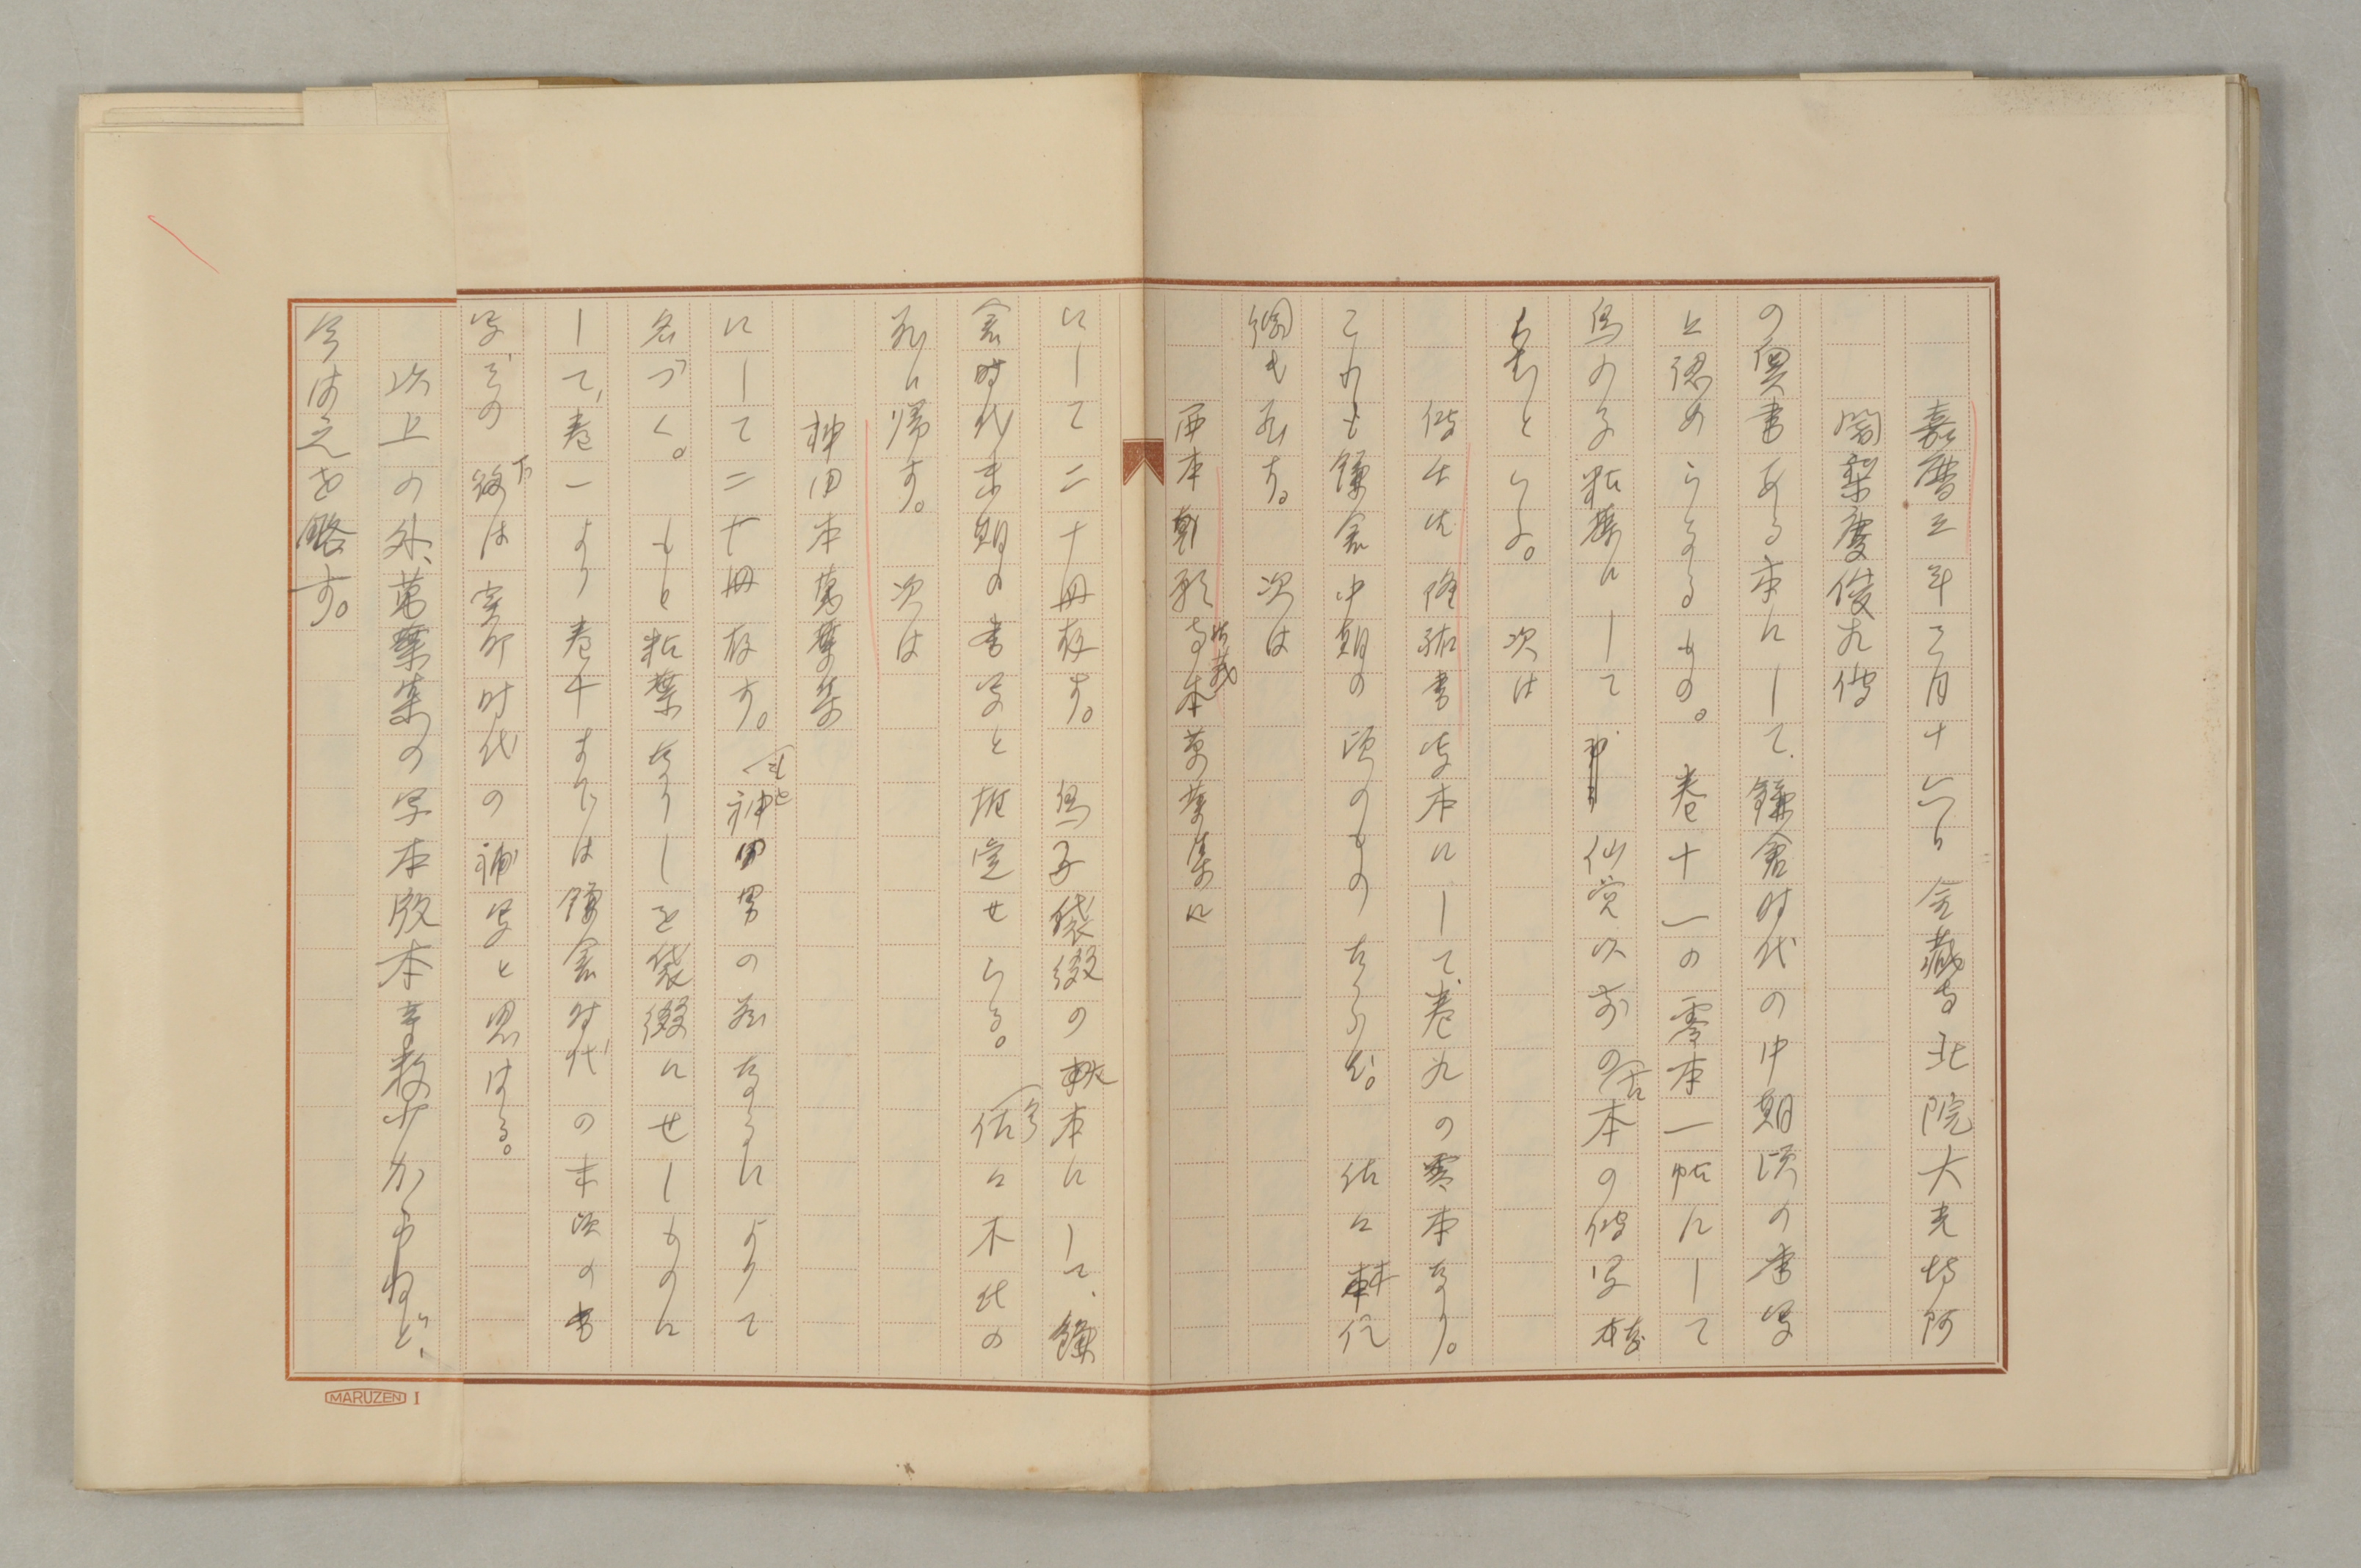 嘉暦三年三月十六日金蔵寺北院大光坊阿
闍梨慶俊九伝
の奥書ある本にして、鎌倉時代の中期頃の書写
と認めらるるもの。巻十一の零本一帖にして
鳥の子粘葉にして仙覚以前の古本の伝写本
なりといふ。次は
伝 隆祐書写本にして、巻九の零本なり。
これも鎌倉中期の頃のものならむ。佐々木信
綱も 。次は
西本願寺旧蔵本萬葉集に
にして二十冊存す。鳥の子袋綴の 本にして、鎌
倉時代末期の書写と推定せらる。今佐々木氏の
 に帰す。次は
神田本萬葉集
にして二十冊存す。もと神田男の なるによりて
名づく。もと粘葉なりしを袋綴にせしものに
して、巻一より巻十までは鎌倉時代の末頃の書
写、その下後は室町時代の補写と思はる。
以上の外、萬葉集の写本版本 数少からねど、
今は之を略す。
MARUZEN I